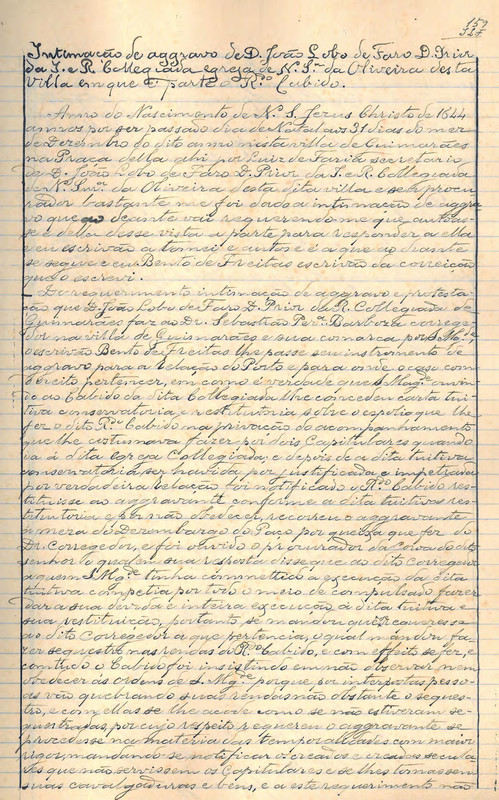 159
Intimação de aggravo de D. João Lobo de Faro D. Prior
da I. e R. Collegiada egreja de N. S.ra da Oliveira desta
villa em que é parte o R.do Cabido.
Anno do Nascimento de N. S. Jesus Christo de 1644
annos por ser passado dia de Natal aos 31 dias do mez
de Dezembro do dito anno nesta villa de Guimarães
na Praça della ahi por Luiz de Faria secretario
de D. João Lobo de Faro D. Prior da I. e R. Collegiada
de N.ª Snr.ª da Oliveira desta dita villa e seu procu
rador bastante me foi dada a intimação de aggra
vo que ao deante vai requerendo-me que autoas-
se e della desse vista á parte para responder a ella
e eu escrivão a tomei e autoei e é a que ao diante
se segue e eu Bento de Freitas escrivão da correição
que o escrevi.
De requerimento intimação de aggravo e protesta-
ção que D. João Lobo de Faro D. Prior da R. Collegiada de
Guimarães faz ao Dr. Sebastião Per.ª Barboza correge-
dor na villa de Guimarães e sua comarca por S. Mg.de,
o escrivão Bento de Freitas lhe passe seu instromento de
aggravo para a Relação do Porto e para onde o caso com
direito pertencer, em como é verdade que S. Mag.de ouvin-
do ao Cabido da dita Collegiada lhe concedeu carta tui-
tiva conservatoria, e restitutoria sobre o espolio que lhe
fez o dito R.do Cabido na privação do acompanhamento
que lhe costumava fazer por dois Capitulares quando
va á dita egreja Collegiada, e depois de a dita tuitiva
conservatoria ser havida por justificada e impetrada
por verdadeira relação foi notificado o R.do Cabido res-
tituisse ao aggravante conforme a dita tuitiva res-
titutoria e por não obedecer, recorreu o aggravante
á meza do Dezembargo do Paço por queixa que fez do
Dr. Corregedor, e foi ouvido o procurador da Coroa do dito
senhor o qual em sua resposta disse que ao dito Corregedor
a quem S. Mg.de tinha commettido a execução da dita
tuitiva competia por todo o meio de compulsado fazer
dar a sua devida e inteira execução á dita tuitiva e
sua restituição, portanto se mandou que requeresse
ao dito Corregedor a que pertencia, o qual mandou fa-
zer sequestro nas rendas do R.do Cabido, e com effeito se fez, e
comtudo o Cabido foi insistindo em não observar nem
obedecer ás ordens de S. Mg.de porque por interpostas pesso-
as vão quebrando suas rendas não obstante o seques-
tro, e com ellas se lhe acode como se não estiveram se-
questradas, por cujo respeito requereu o aggravante se
procedesse na materia das temporalidades com maior
rigor, mandando-se notificar os creados e creadas secula-
res que não servissem os Capitulares e se lhes tomassem
suas cavalgaduras e bens, e a este requerimento não